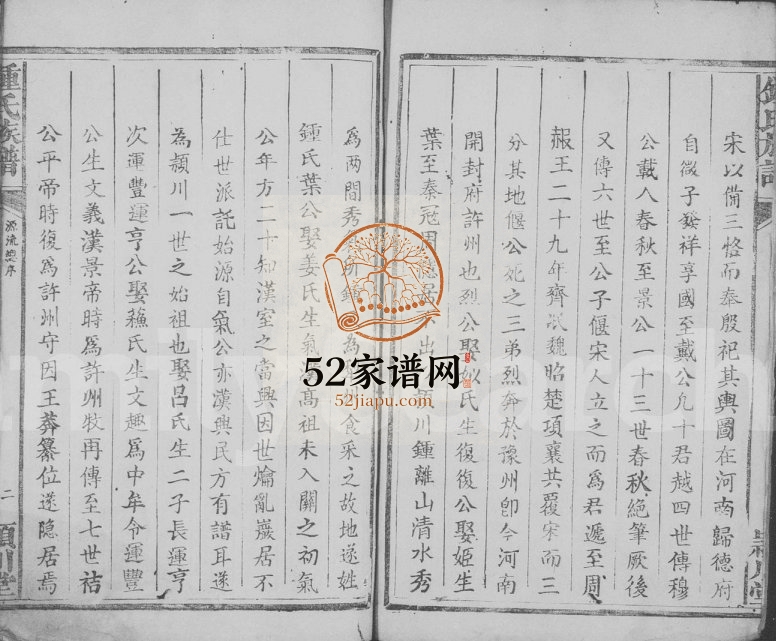 宋以備三恪而奉殷祀其輿圖在河南歸德府
自微子發祥享國至戴公九十君越四世傳穆
公載入春秋至景公一十三世春秋絶筆厥後
又傳六世至公子偃宋人立之而爲君遞至周
赧王二十九年齊湣魏昭楚頃襄共覆宋而三
分其地偃公死之三弟烈奔於豫州卽今河南
開封府許州也烈公娶姒氏生復復公娶姬生
葉至秦冠周出川鍾離山清水秀
為两間秀為食采之故地遂姓
鍾氏葉公娶姜氏生氣高祖未入關之初氣
公年方二十知漢室之當興因世爚亂巖居不
仕世派託始源自氣公亦漢興民方有譜耳遂
為潁川一世之始祖也娶呂氏生二子長運亨
次運豐運亨公娶蘓氏生文趣爲中牟令運豐
公生文義漢景帝時爲許州牧再傳至七世祜
公平帝時復爲許州守因王莽纂位遂隐居焉
鍾氏族譜
源流總序
二
潁川堂
52家谱网
52jiapu.com